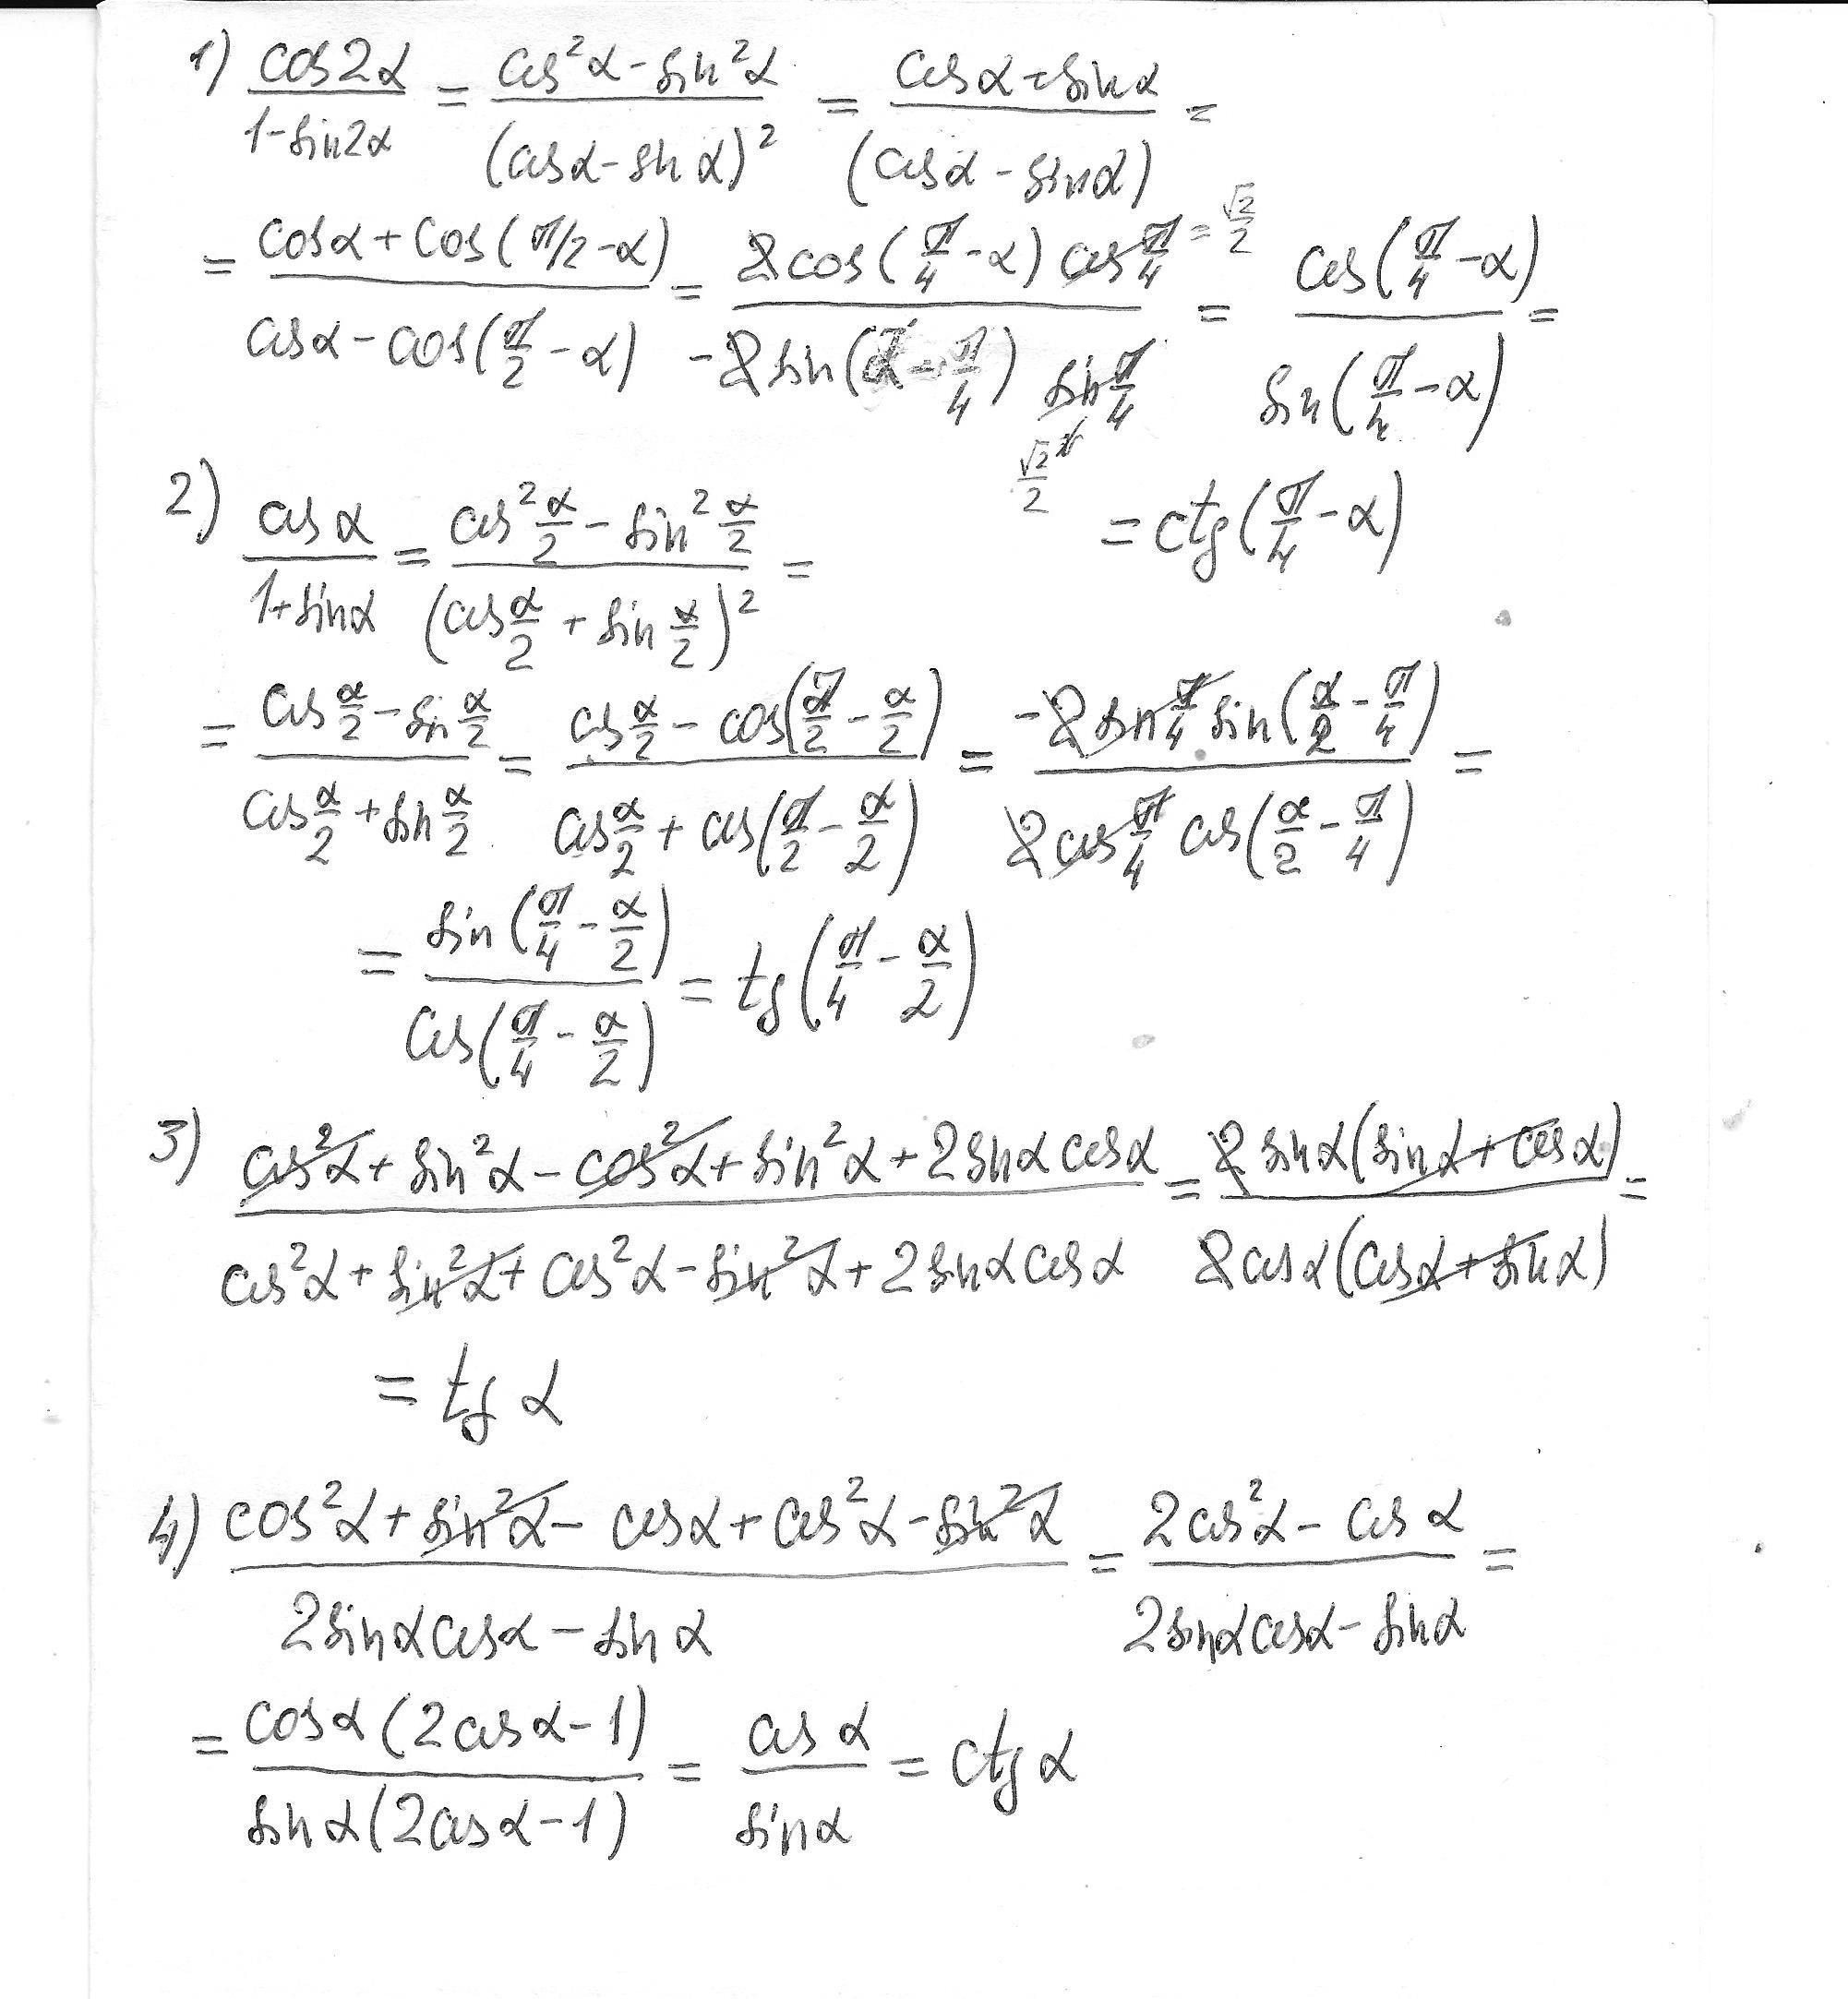 1) cos2α / 1-sin2α = cos²α - sin²α / (cosα - sin α)² = cosα + sinα / (cosα - sinα) =
= cosα + cos(π/2 - α) / cosα - cos(π/2 - α) = 2cos(π/4 - α) cos π/4 = √2/2 / -2sin(α - π/4) sin π/4 √2/2 = cos(π/4 - α) / sin(π/4 - α) =
= ctg(π/4 - α)
2) cos α / 1+sinα = cos² α/2 - sin² α/2 / (cos α/2 + sin α/2)² =
= cos α/2 - sin α/2 / cos α/2 + sin α/2 = cos α/2 - cos(π/2 - α/2) / cos α/2 + cos(π/2 - α/2) = -2 sin π/4 sin(α/2 - π/4) / 2 cos π/4 cos(α/2 - π/4) =
= sin(π/4 - α/2) / cos(π/4 - α/2) = tg(π/4 - α/2)
3) cos²α + sin²α - cos²α + sin²α + 2sinα cosα / cos²α + sin²α + cos²α - sin²α + 2sinα cosα = 2 sinα(sinα + cosα) / 2cosα(cosα + sinα) =
= tg α
4) cos²α + sin²α - cosα + cos²α - sin²α / 2sinα cosα - sin α = 2cos²α - cos α / 2sinα cosα - sinα =
= cosα(2cosα - 1) / sinα(2cosα - 1) = cos α / sinα = ctg α